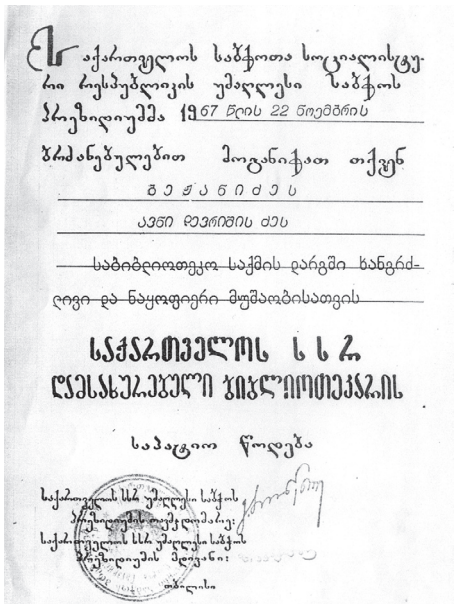 საქართველოს საბჭოთა სოციალისტუ-
რი რესპუბლიკის უმაღლესი საბჭოს
პრეზიდიუმმა 1967 წლის 22 ნოემბრის
ბრძანებულებით მოგანიჭათ თქვენ
ბეჟანიძეს
ავნი დევრიშის ძეს
საბიბლიოთეკო საქმის დარგში ხანგრძ-
ლივი და ნაყოფიერი მუშაობისათვის
საქართველოს ს ს რ
დამსახურებული ბიბლიოთეკარის
საპატიო წოდება
საქართველოს სსრ უმაღლესი საბჭოს
პრეზიდიუმის თავმჯდომარე:
საქართველოს სსრ უმაღლესი საბჭოს
პრეზიდიუმის მდივანი:
თბილისი